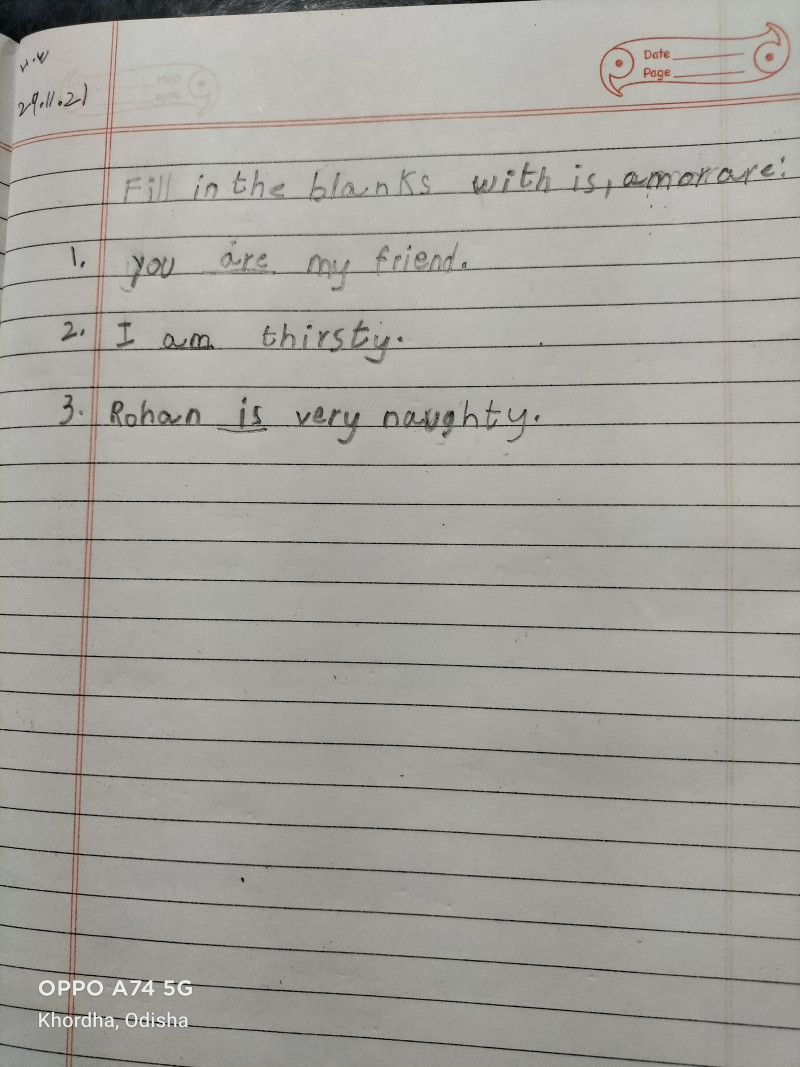 H.W
29.11.21
Date
Page
Fill in the blanks with is, am or are:
1. you are my friend.
2. I am thirsty.
3. Rohan is very naughty.
OPPO A74 5G
Khordha, Odisha